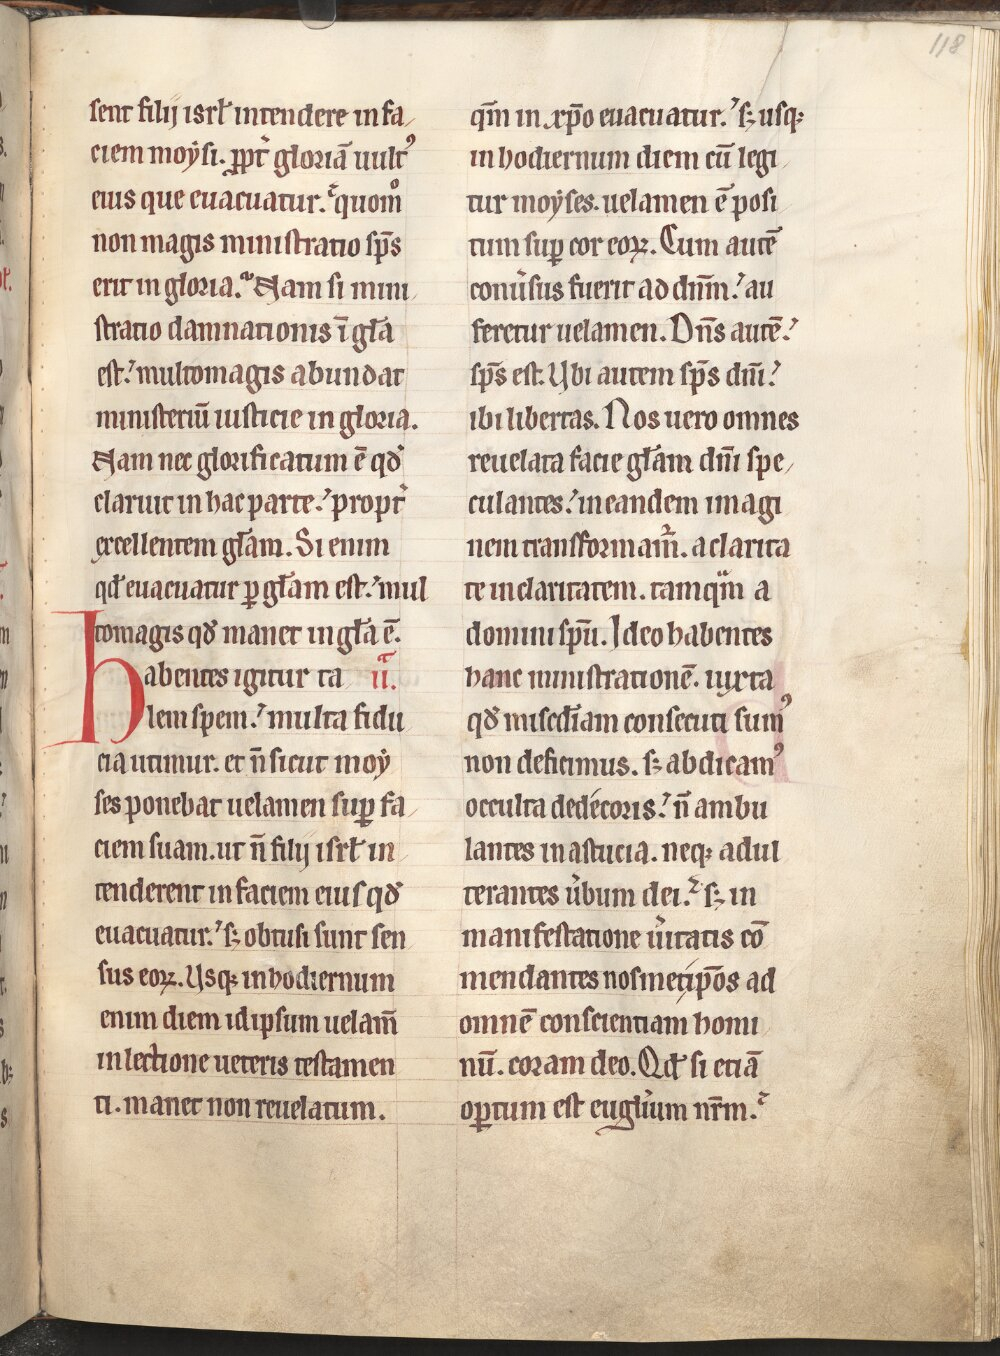 118
sent filij isrł intendere in fa
ciem moẏsi. ꝓpt̉ gloriā uult᷒
eius que euacuatur. quom̊
non magis ministratio sp̄s
erit in gloria. Nam si mini
stratio damnationis ī gła
est. multomagis abundat
ministeriū iusticie in gloria.
Nam nec glorificatum ē qđ
claruit in hac parte. propt̉
excellentem głam. Si enim
qđ euacuatur ꝑ głam est. mul
tomagis qđ manet in gła ē.
habentes igitur ta ii.
lem spem. multa fidu
cia utimur. et n̄ sicut moẏ
ses ponebat uelamen suꝑ fa
ciem suam. ut n̄ filij isrł in
tenderent in faciem eius qđ
euacuatur. sꝫ obtusi sunt sen
sus eoꝝ. Usqꝫ in hodiernum
enim diem idipsum uelam̄
in lectione ueteris testamen
ti. manet non reuelatum.
qm̄ in xp̄o euacuatur. sꝫ usqꝫ
in hodiernum diem cū legi
tur moẏses. uelamen ē posi
tum suꝑ cor eoꝝ. Cum autē
conủsus fuerit ad dn̄m. au
feretur uelamen. Dn̄s autē.
sp̄s est. Ubi autem sp̄s dn̄i.
ibi libertas. Nos uero omnes
reuelata facie głam dn̄i spe
culantes. in eandem imagi
nem transformam̉. a clarita
te in claritatem. tamqm̄ a
domini sp̄u. Ideo habentes
hanc ministrationē. iuxta
qđ misc̄diam consecuti sum᷒
non deficimus. sꝫ abdicam᷒
occulta dedécoris. n̄ ambu
lantes in astucia. neqꝫ adul
terantes ủbum dei. sꝫ in
manifestatione ủitatis cō
mendantes nosmetip̄os ad
omnē conscientiam homi
nū. coram deo. Qđ si etiā
oꝑtum est eugłium nr̄m.